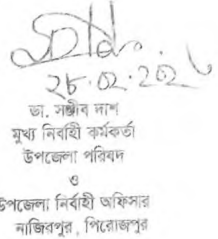 ২৮.০২.২০২
ডা. সঞ্জীব দাশ
মুখ্য নির্বাহী কর্মকর্তা
উপজেলা পরিষদ
ও
উপজেলা নির্বাহী অফিসার
নাজিরপুর, পিরোজপুর